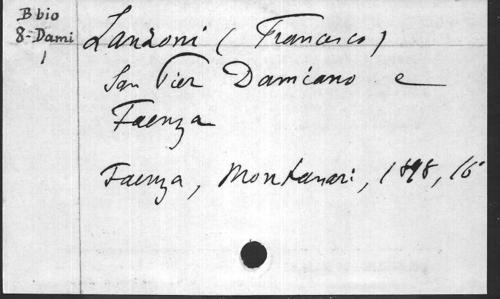 B bio
8-Dami
1
Lanzoni (Francesco)
San Pier Damiano e
Faenza
Faenza, Montanari, 1898, 16°